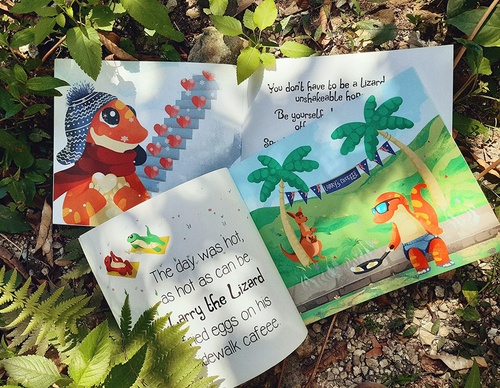 You don't have to be a lizard
unshakeable
Be yourself
LARRY'S
The day was hot,
as hot as can be
Larry the Lizard
eggs on his
cafeee.